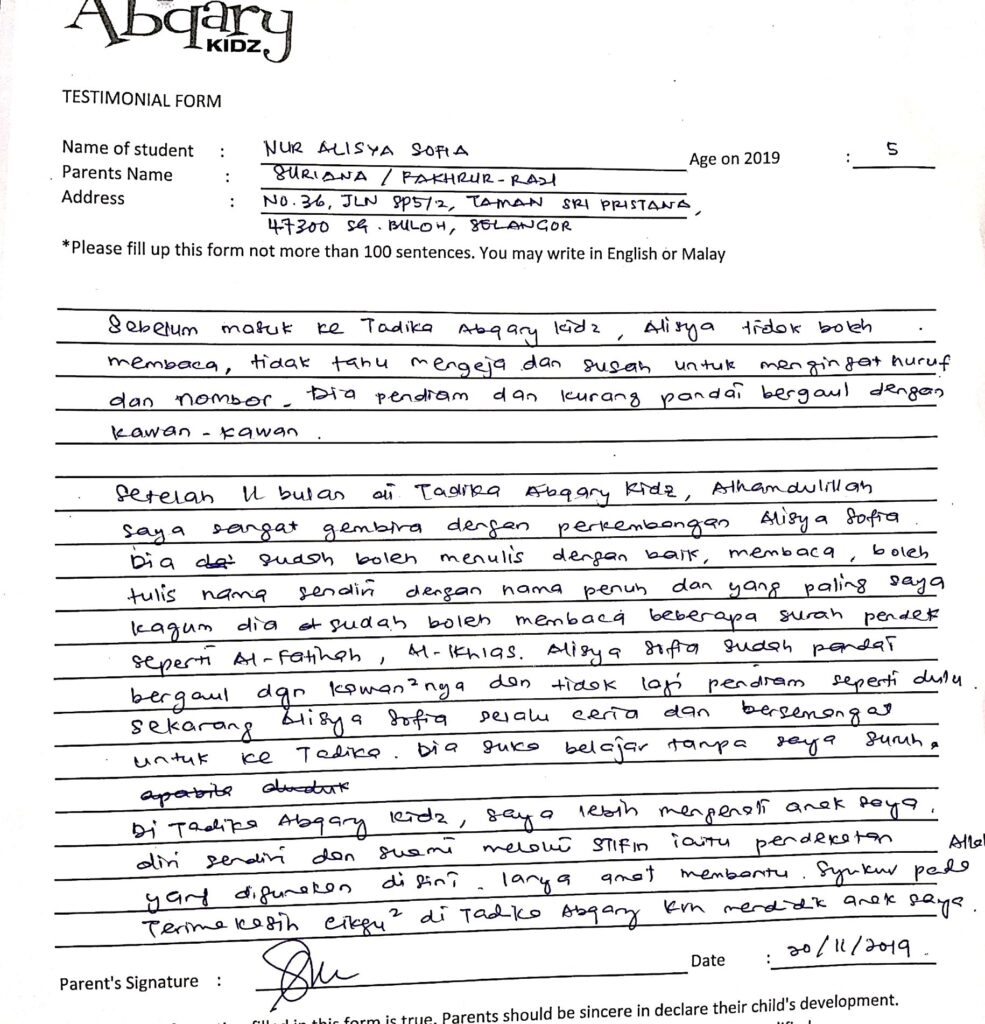 Abqary
KIDZ
TESTIMONIAL FORM
Name of student : NUR ALISYA SOFIA Age on 2019 : 5
Parents Name : SURIANA / FAKHRUR-RAZI
Address : NO.36, JLN SP5/2, TAMAN SRI PRISTANA,
47300 SG. BULOH, SELANGOR
*Please fill up this form not more than 100 sentences. You may write in English or Malay
Sebelum masuk ke Tadika Abqary Kidz, Alisya tidak boleh
membaca, tidak tahu mengeja dan susah untuk mengingat huruf
dan nombor. Dia pendiam dan kurang pandai bergaul dengan
kawan-kawan.
Setelah 11 bulan di Tadika Abqary Kidz, Alhamdulillah
saya sangat gembira dengan perkembangan Alisya Sofia.
Dia sudah boleh menulis dengan baik, membaca, boleh
tulis nama sendiri dengan nama penuh dan yang paling saya
kagum dia sudah boleh membaca beberapa surah pendek
seperti Al-Fatihah, Al-Ikhlas. Alisya Sofia sudah pandai
bergaul dgn kawan²nya dan tidak lagi pendiam seperti dulu.
Sekarang Alisya Sofia selalu ceria dan bersemangat
untuk ke Tadika. Dia suka belajar tanpa saya suruh.
apabila duduk
Di Tadika Abqary Kidz, saya lebih mengenali anak saya,
diri sendiri dan suami melalui STIFIn iaitu pendekatan
yang digunakan disini. Ianya amat membantu. Syukur pada
Terima kasih cikgu² di Tadika Abqary krn mendidik anak saya.
Parent's Signature : Date : 20/11/2019.
filled in this form is true. Parents should be sincere in declare their child's development.